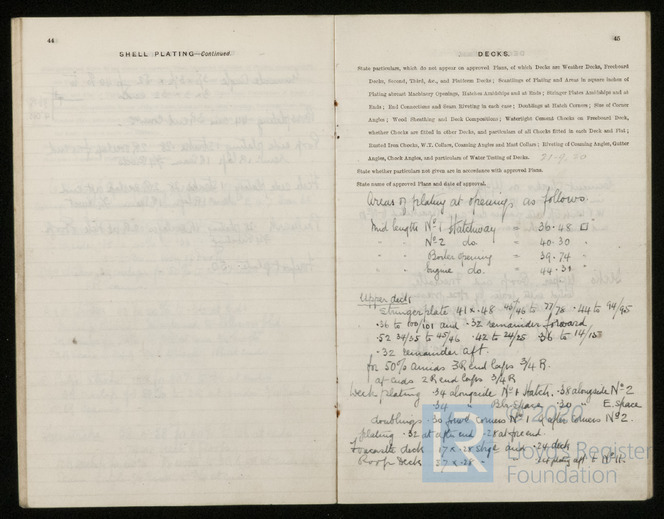 44
SHELL PLATING—Continued.
45
DECKS.
State particulars, which do not appear on approved Plans, of which Decks are Weather Decks, Freeboard
Decks, Second, Third, &c., and Platform Decks; Scantlings of Plating and Areas in square inches of
Plating abreast Machinery Openings, Hatches Amidships and at Ends; Stringer Plates Amidships and at
Ends; End Connections and Seam Riveting in each case; Doublings at Hatch Corners; Size of Corner
Angles; Wood Sheathing and Deck Compositions; Watertight Cement Chocks on Freeboard Deck,
whether Chocks are fitted in other Decks, and particulars of all Chocks fitted in each Deck and Flat;
Riveted Iron Chocks, W.T. Collars, Coaming Angles and Mast Collars; Riveting of Coaming Angles, Gutter
Angles, Chock Angles, and particulars of Water Testing of Decks. 21-9-20
State whether particulars not given are in accordance with approved Plans.
State name of approved Plans and date of approval.
Areas of plating at openings as follows.
Mid length No 1 Hatchway = 36.48 □
" " No 2 do. = 40.30
" " Boiler opening = 39.74
" " Engine do. = 44.31
Upper deck
Stringer plate 41 x .48 40/46 to 77/78 .44 to 94/95
.36 to 100/101 and .32 remainder forward
.52 34/35 to 45/46 .42 to 24/25 .36 to 14/15
.32 remainder aft.
for 50% amids 3R end laps 3/4 R.
at ends 2R end laps 3/4 R
Deck plating .34 alongside No 1 Hatch .38 alongside No 2
.34 " Blr space .30 " E. space
doublings .30 forwd corners No 1 & after corners No 2.
plating .32 at after end .28 at fore end.
Forecastle deck 37 x .28 strge and .24 deck
Poop Deck 37 x .28
© 2020
LR
Lloyd's Register
Foundation